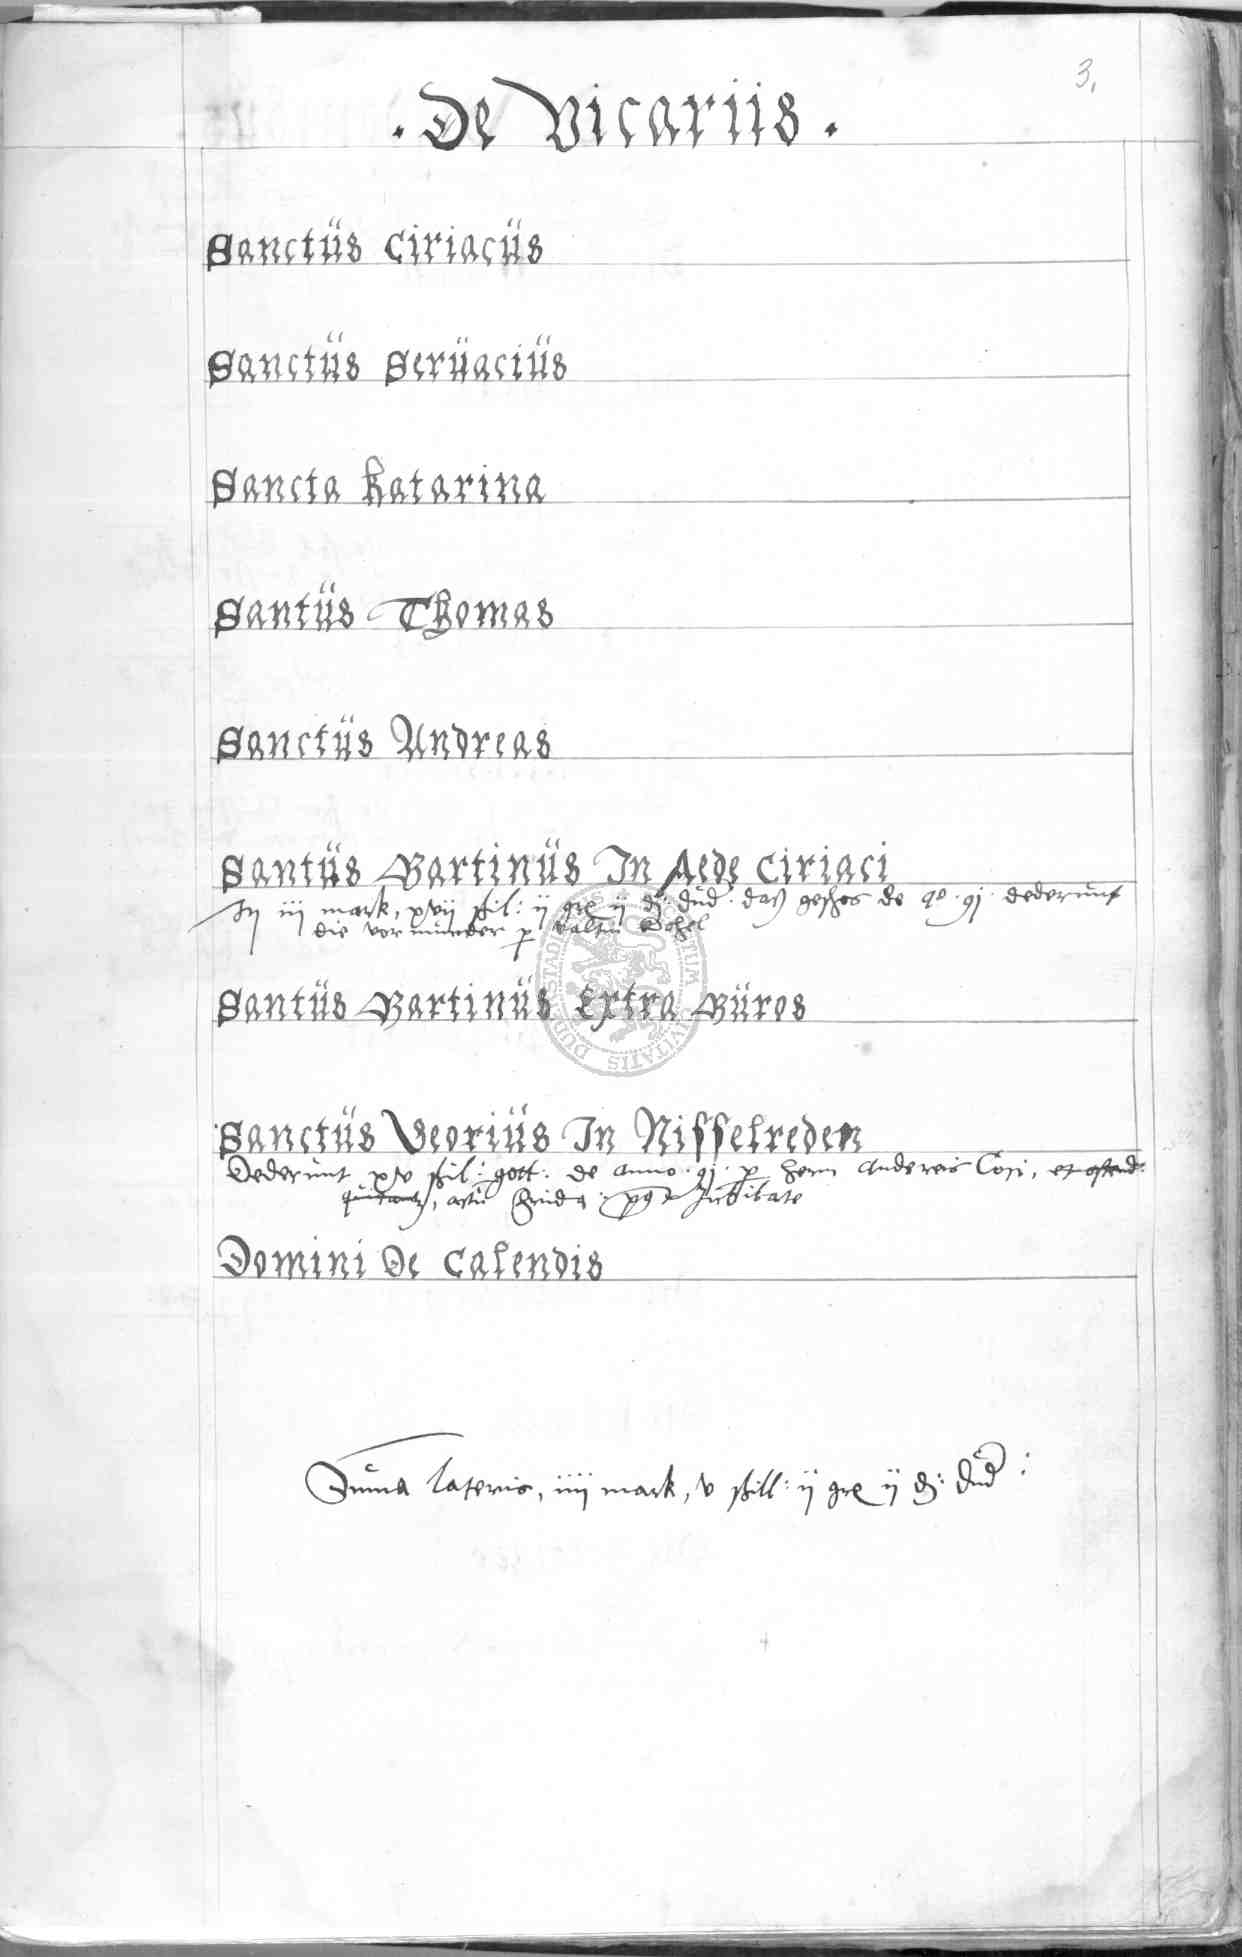 3.
. De Vicariis .
Sanctüs Ciriacüs
Sanctüs Serüaciüs
Sancta Katarina
Santüs Thomas
Sanctüs Andreas
Santüs Martinüs In Aede Ciriaci
iij mark, xvij ßil: ij gre ij d: dud. daß geschos de ao. 91. dederunt
die vormunder p valtin
Santüs Martinüs Extra Müros
Sanctüs Georiüs In Nisselreden
Dederunt xv ßil: gott: de anno. 91. p hern andereis Cosi, et ostend:
quitantz, Jubilate
Domini De Calendis
Suma lateris, iiij mark, v ßill: ij gre ij d: dud:
SIGILLUM CIVITATIS DUDERSTAD